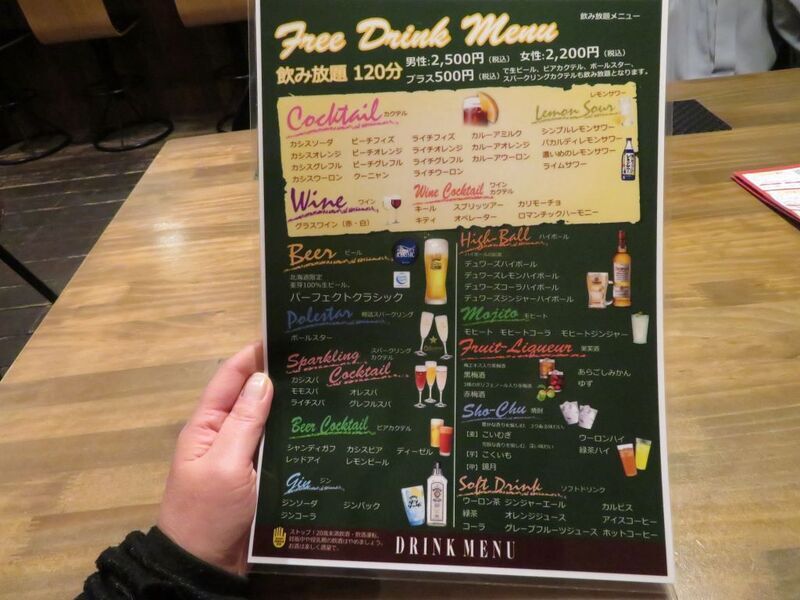 飲み放題メニュー
Free Drink Menu
飲み放題 120分
男性:2,500円(税込) 女性:2,200円(税込)
プラス500円(税込)で生ビール、ビアカクテル、ポールスター、
スパークリングカクテルも飲み放題となります。
Cocktail カクテル
カシスソーダ ピーチフィズ ライチフィズ カルーアミルク
カシスオレンジ ピーチオレンジ ライチオレンジ カルーアオレンジ
カシスグレフル ピーチグレフル ライチグレフル カルーアウーロン
カシスウーロン クーニャン ライチウーロン
レモンサワー
Lemon Sour
シンプルレモンサワー
バカルディレモンサワー
濃いめのレモンサワー
ライムサワー
Wine ワイン
グラスワイン(赤・白)
Wine Cocktail ワインカクテル
キール スプリッツァー カリモーチョ
キティ オペレーター ロマンチックハーモニー
Beer ビール
北海道限定
麦芽100%生ビール。
パーフェクトクラシック
Polestar 樽詰スパークリング
ポールスター
Sparkling Cocktail スパークリングカクテル
カシスパ
モモスパ オレスパ
ライチスパ グレフルスパ
Beer Cocktail ビアカクテル
シャンディガフ カシスビア ディーゼル
レッドアイ レモンビール
Gin ジン
ジンソーダ ジンバック
ジンコーラ
High-Ball ハイボール
デュワーズハイボール
デュワーズレモンハイボール
デュワーズコーラハイボール
デュワーズジンジャーハイボール
Mojito モヒート
モヒート モヒートコーラ モヒートジンジャー
Fruit-Liqueur 果実酒
梅エキス入り黒梅酒
黒梅酒 あらごしみかん
3種のポリフェノール入り赤梅酒 ゆず
赤梅酒
Sho-Chu 焼酎
【麦】こいむぎ ウーロンハイ
【芋】こくいも 緑茶ハイ
【甲】鏡月
Soft Drink ソフトドリンク
ウーロン茶 ジンジャーエール カルピス
緑茶 オレンジジュース アイスコーヒー
コーラ グレープフルーツジュース ホットコーヒー
ストップ!20歳未満飲酒・飲酒運転。
妊娠中や授乳期の飲酒はやめましょう。
お酒は楽しく適量で。
DRINK MENU